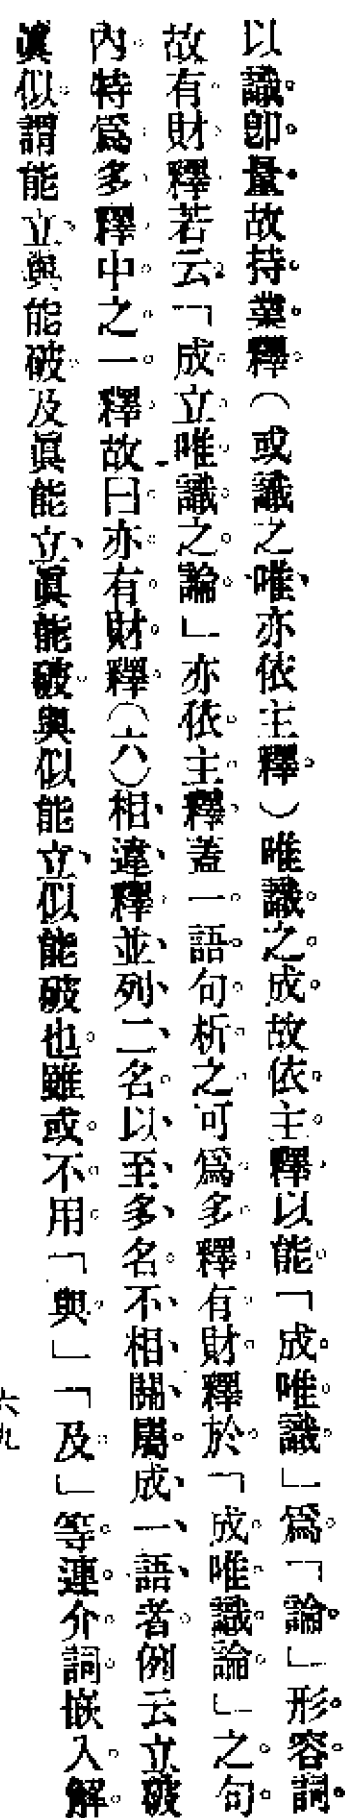 以識卽量故持業釋（或識之唯亦依主釋）唯識之成故依主釋以能「成唯識」爲「論」形容詞
故有財釋若云「成立唯識之論」亦依主釋蓋一語句析之可爲多釋有財釋於「成唯識論」之句
內特爲多釋中之一釋故曰亦有財釋（六）相違釋並列二名以至多名不相關屬成一語者例云立破
眞似謂能立與能破及眞能立眞能破與似能立似能破也雖或不用「與」「及」等連介詞嵌入解
六九